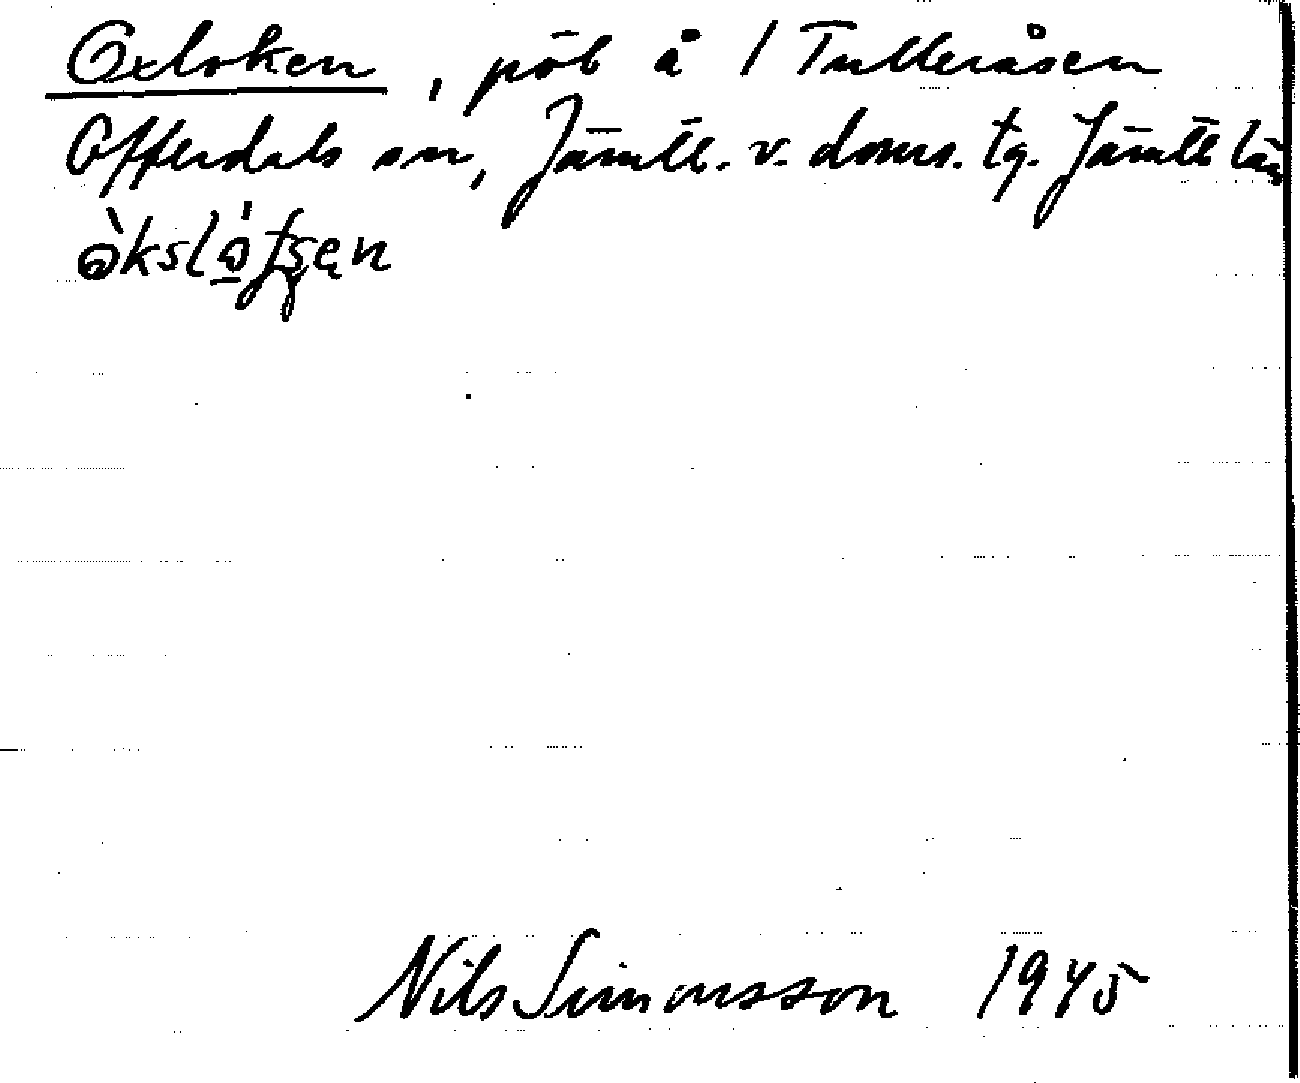 Oxloken, påb å 1 Tulleråsen
Offerdals sn, Jämtl. v. doms. tg. Jämtl län
Nils Simonsson 1945